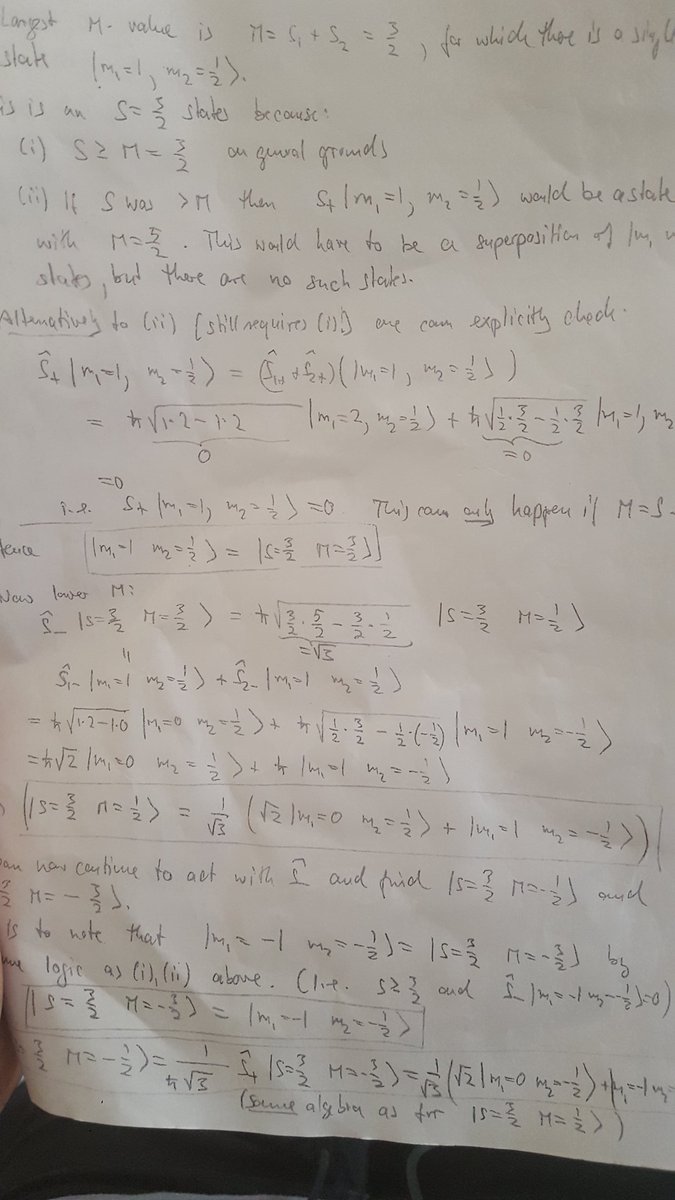 Largest M-value is M = S₁ + S₂ = 3/2, for which there is a single
state |m₁=1, m₂=1/2⟩.
is is an S=3/2 states because:
(i) S ≥ M = 3/2 on general grounds
(ii) If S was >M then S₊|m₁=1, m₂=1/2⟩ would be a state
with M=5/2. This would have to be a superposition of |m₁
states, but there are no such states.
Alternatively to (ii) [still requires (i)!] one can explicitly check.
Ŝ₊|m₁=1, m₂=1/2⟩ = (Ŝ₁₊+Ŝ₂₊)(|m₁=1, m₂=1/2⟩)
= ħ√(1·2−1·2) |m₁=2, m₂=1/2⟩ + ħ√(1/2·3/2−1/2·3/2) |m₁=1, m₂
0 =0
=0
i.e. S₊|m₁=1, m₂=1/2⟩=0 This can only happen if M=S
Hence |m₁=1 m₂=1/2⟩ = |S=3/2 M=3/2⟩
Now lower M:
Ŝ₋|S=3/2 M=3/2⟩ = ħ√(3/2·5/2−3/2·1/2) |S=3/2 M=1/2⟩
=√3
Ŝ₁₋|m₁=1 m₂=1/2⟩ + Ŝ₂₋|m₁=1 m₂=1/2⟩
= ħ√(1·2−1·0) |m₁=0 m₂=1/2⟩ + ħ√(1/2·3/2−1/2·(−1/2)) |m₁=1 m₂=−1/2⟩
= ħ√2 |m₁=0 m₂=1/2⟩ + ħ |m₁=1 m₂=−1/2⟩
|S=3/2 M=1/2⟩ = 1/√3 (√2|m₁=0 m₂=1/2⟩ + |m₁=1 m₂=−1/2⟩)
can now continue to act with Ŝ₋ and find |S=3/2 M=−1/2⟩ and
3/2 M=−3/2⟩.
is to note that |m₁=−1 m₂=−1/2⟩ = |S=3/2 M=−3/2⟩ by
logic as (i),(ii) above. (i.e. S≥3/2 and Ŝ₋|m₁=−1 m₂=−1/2⟩=0)
|S=3/2 M=−3/2⟩ = |m₁=−1 m₂=−1/2⟩
3/2 M=−1/2⟩ = 1/(ħ√3) Ŝ₊|S=3/2 M=−3/2⟩ = 1/√3(√2|m₁=0 m₂=−1/2⟩+|m₁=−1 m₂=
(same algebra as for |S=3/2 M=1/2⟩)